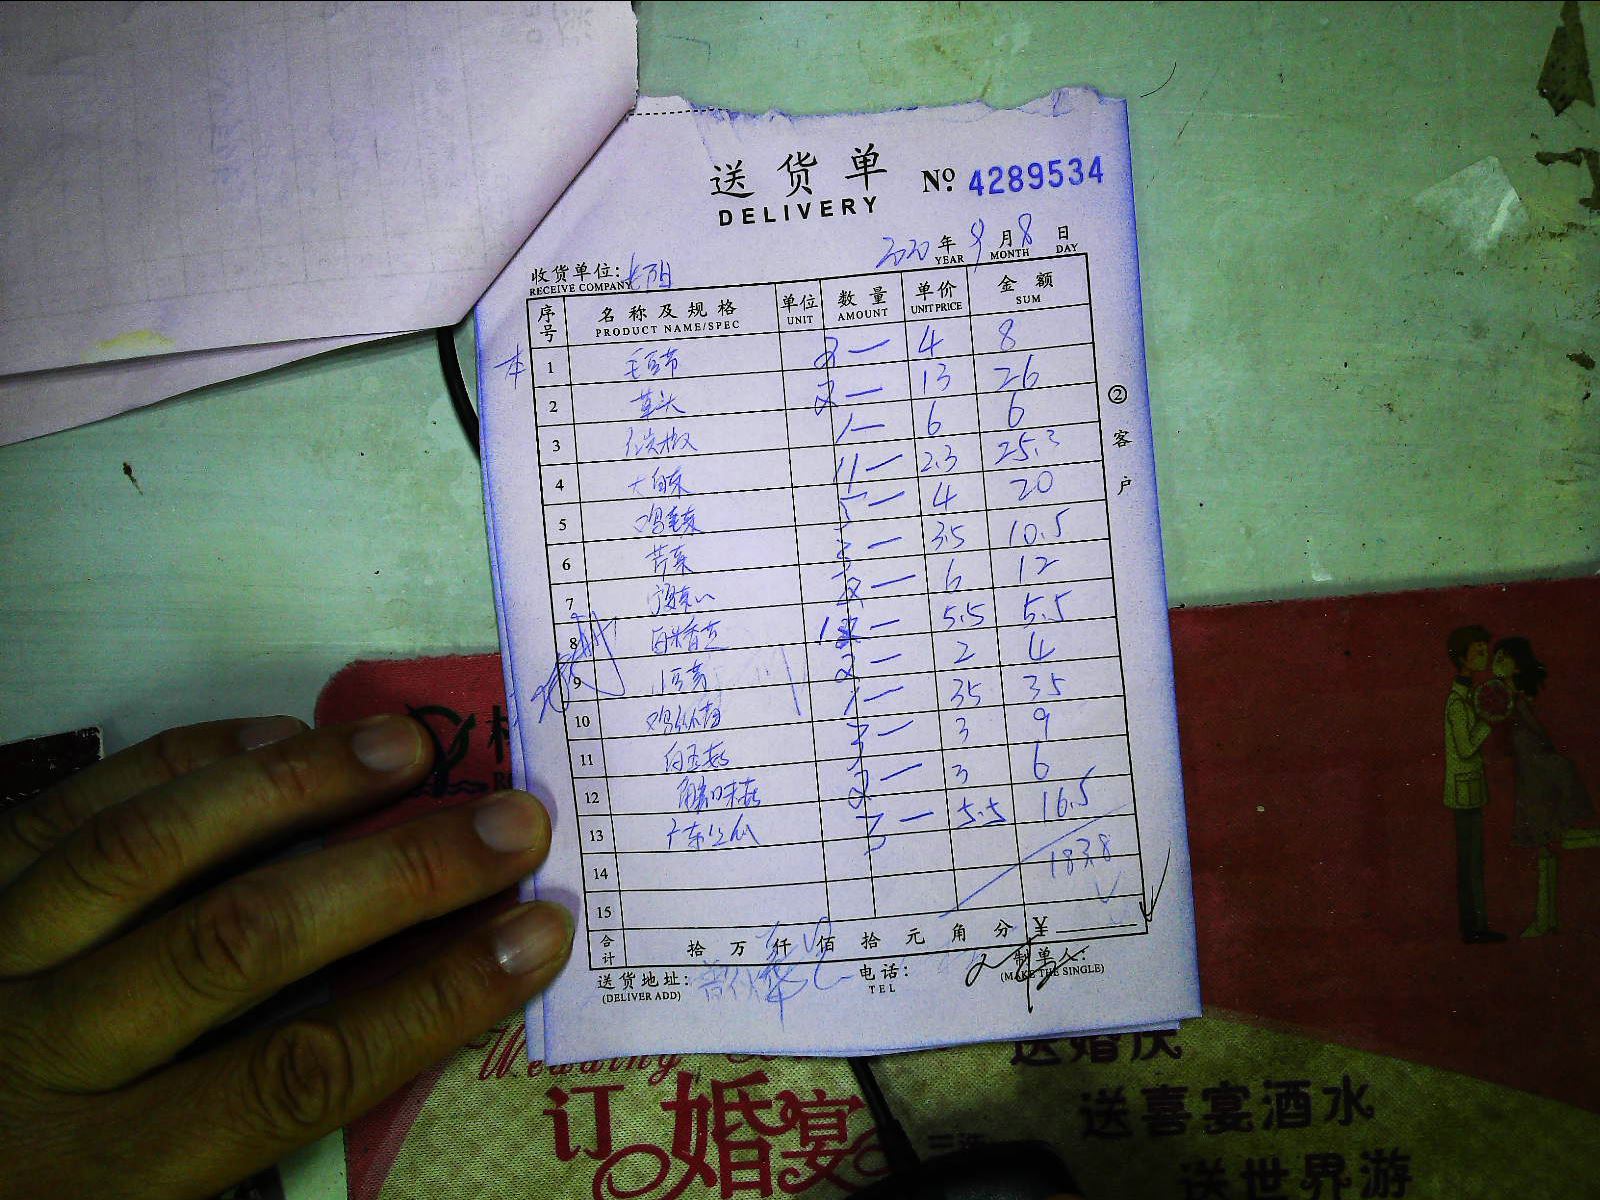 送货单
DELIVERY
№ 4289534
2020 年 9 月 8 日
YEAR MONTH DAY
收货单位:
RECEIVE COMPANY
序号 名称及规格 单位 数量 单价 金额
PRODUCT NAME/SPEC UNIT AMOUNT UNIT PRICE SUM
1 毛豆节 2 — 4 8
2 草头 2 — 13 26
3 1 — 6 6
4 大白菜 11 — 2.3 25.3
5 鸡毛菜 5 — 4 20
6 芹菜 3 — 3.5 10.5
7 2 — 6 12
8 1 — 5.5 5.5
9 2 — 2 4
10 1 — 35 35
11 3 — 3 9
12 2 — 3 6
13 广东 3 — 5.5 16.5
14 183.8
15
合计 拾 万 仟 佰 拾 元 角 分 ¥
送货地址: 电话: 制单人:
(DELIVER ADD) TEL (MAKE THE SINGLE)
② 客户
Wedding
订婚宴
送婚庆
送喜宴酒水
送世界游